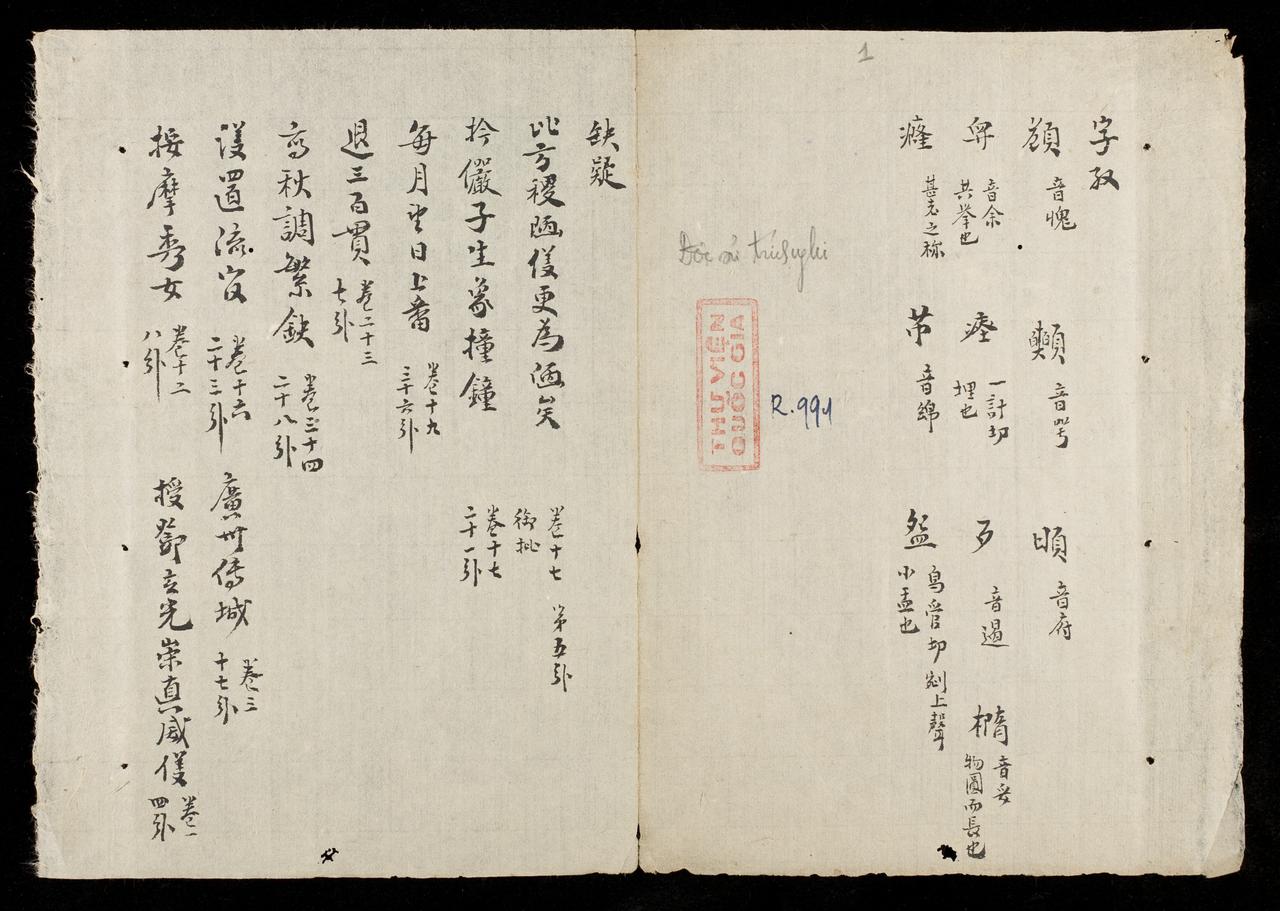 1
字攷
顧 音愧 顙 音咢 頫 音府
舁 音余 共举也 瘞 一計切 埋也 歹 音遏 橢 音妥 物圓而長也
癃 甚老之称 芇 音綿 盌 烏管切 剜上聲 小盂也
THƯ VIỆN
QUỐC GIA
R.991
缺疑
此方稷 更為 矣 卷十七 第五卟
拎儼子生象撞鐘 御批 卷十七 二十一卟
每月望日上番 卷十九 三十六卟
退三百貫 卷二十三 七卟
高秋調繁鈌 卷三十四 二十八卟
護置流官 卷十六 二十三卟 廣州傳城 卷三 十七卟
按摩秀女 卷十二 八卟 授鄧立光崇真威儀 卷一 四卟